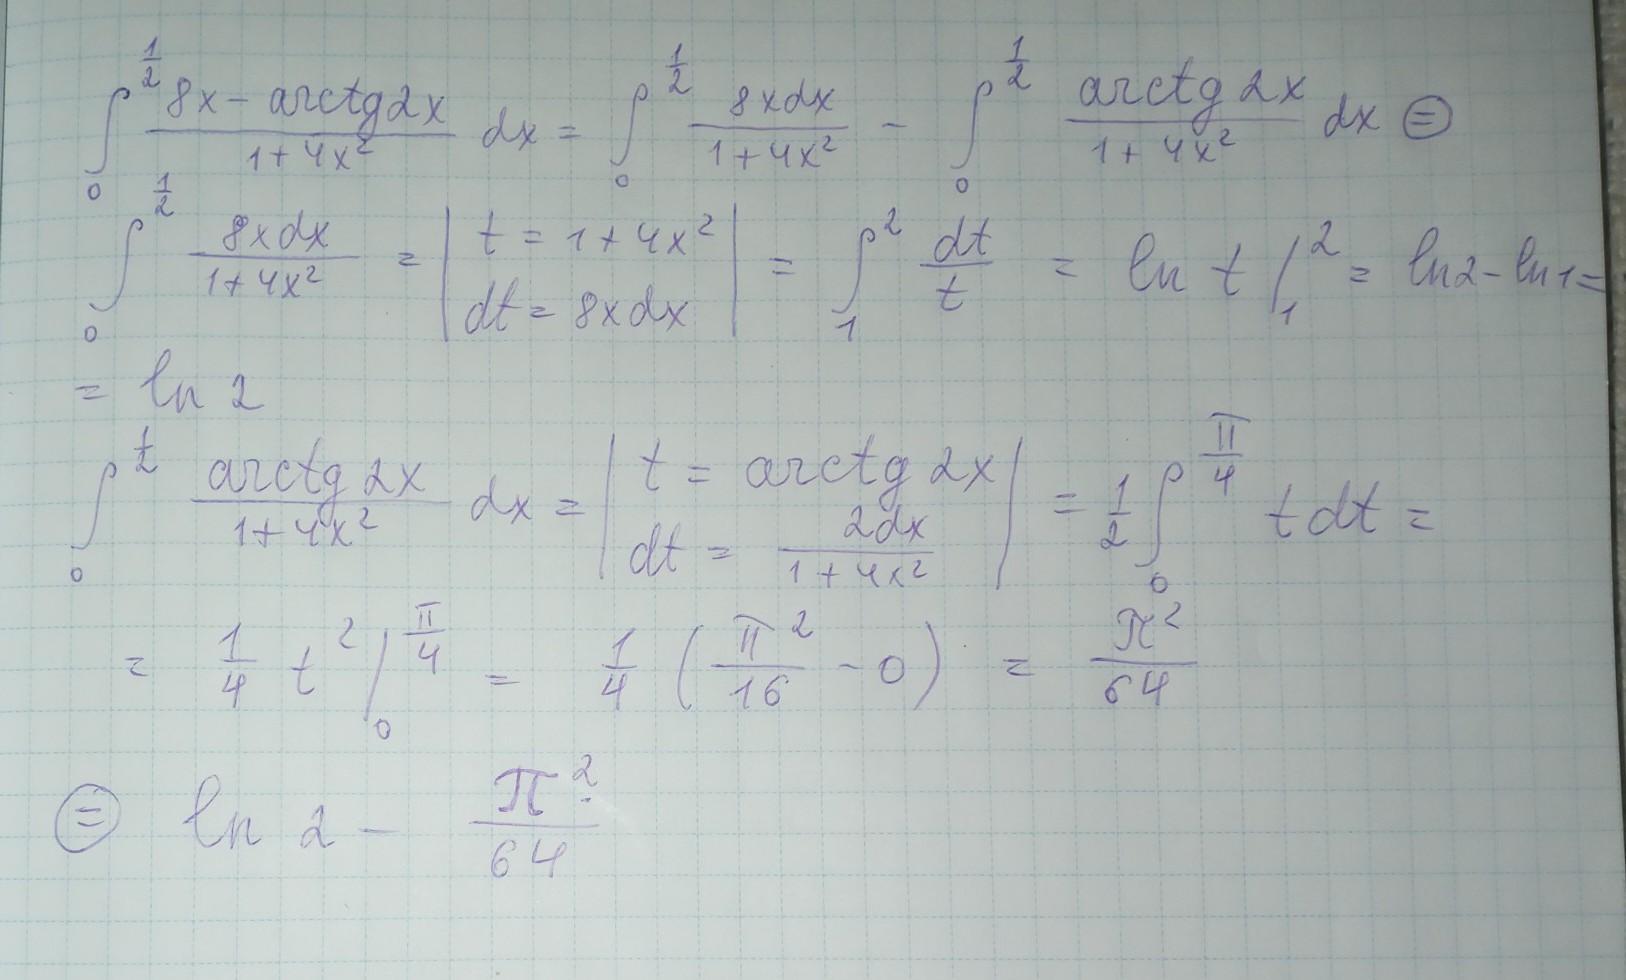 ∫₀^{1/2} (8x - arctg 2x)/(1+4x²) dx = ∫₀^{1/2} 8xdx/(1+4x²) - ∫₀^{1/2} arctg 2x/(1+4x²) dx ⊜
∫₀^{1/2} 8xdx/(1+4x²) = | t = 1+4x² ; dt = 8xdx | = ∫₁² dt/t = ln t |₁² = ln2 - ln1 =
= ln 2
∫₀^{1/2} arctg 2x/(1+4x²) dx = | t = arctg 2x ; dt = 2dx/(1+4x²) | = 1/2 ∫₀^{π/4} t dt =
= 1/4 t² |₀^{π/4} = 1/4 (π²/16 - 0) = π²/64
⊜ ln 2 - π²/64